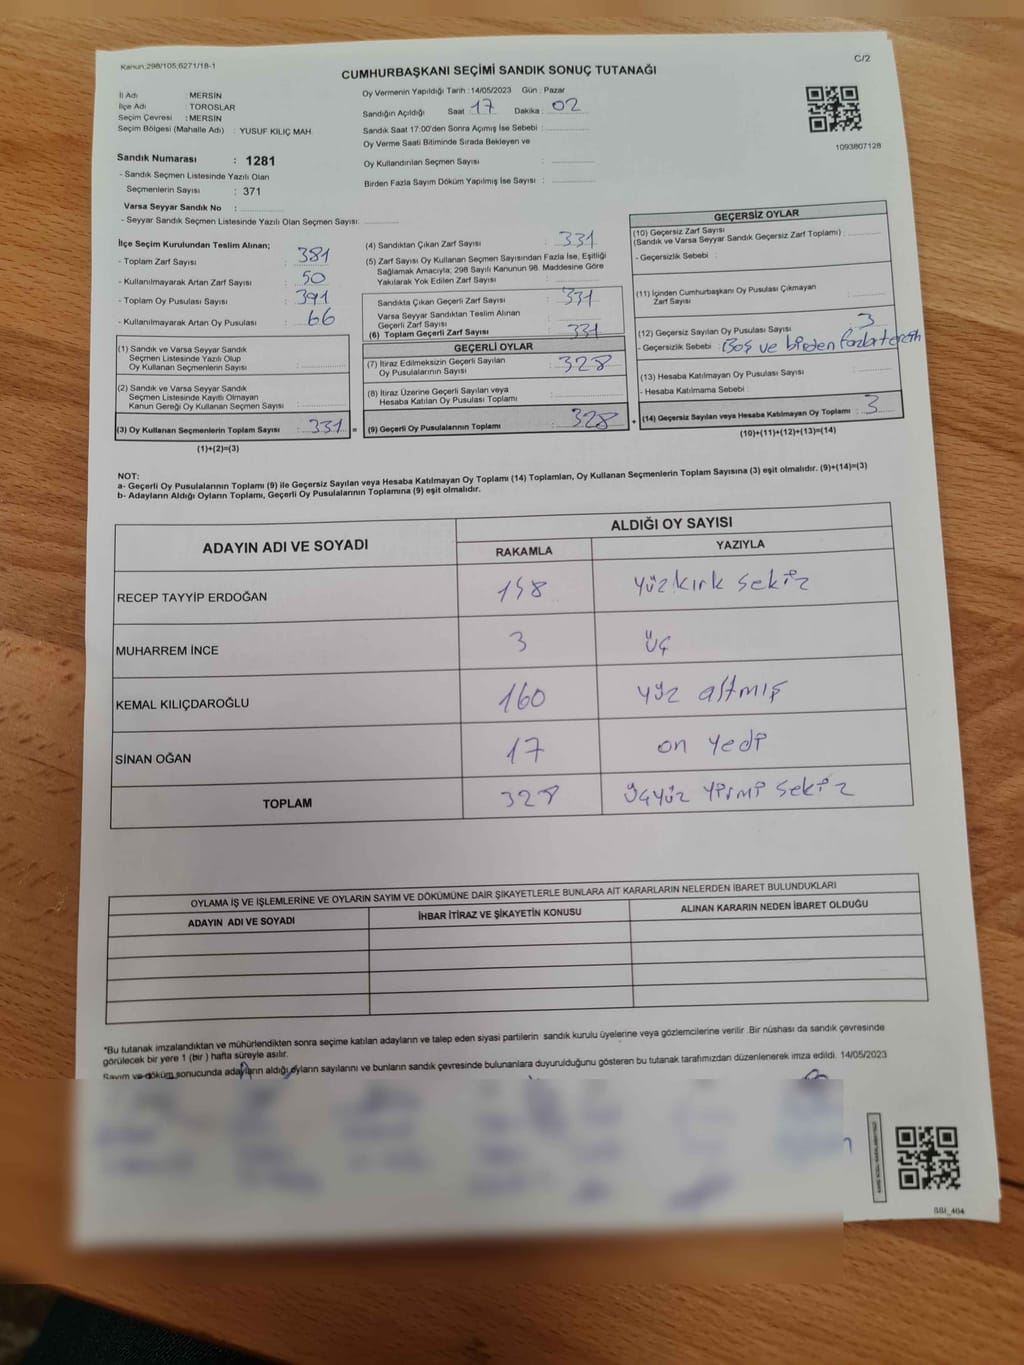 Kanun:298/105,6271/18-1
C/2
CUMHURBAŞKANI SEÇİMİ SANDIK SONUÇ TUTANAĞI
İl Adı : MERSİN
İlçe Adı : TOROSLAR
Seçim Çevresi : MERSİN
Seçim Bölgesi (Mahalle Adı) : YUSUF KILIÇ MAH.
Oy Vermenin Yapıldığı Tarih : 14/05/2023 Gün : Pazar
Sandığın Açıldığı Saat 17 Dakika : 02
Sandık Saat 17:00'den Sonra Açımış İse Sebebi :
Oy Verme Saati Bitiminde Sırada Bekleyen ve
Oy Kullandırılan Seçmen Sayısı :
Birden Fazla Sayım Döküm Yapılmış İse Sayısı :
1093807128
Sandık Numarası : 1281
- Sandık Seçmen Listesinde Yazılı Olan
Seçmenlerin Sayısı : 371
Varsa Seyyar Sandık No :
- Seyyar Sandık Seçmen Listesinde Yazılı Olan Seçmen Sayısı:
İlçe Seçim Kurulundan Teslim Alınan;
- Toplam Zarf Sayısı : 381
- Kullanılmayarak Artan Zarf Sayısı : 50
- Toplam Oy Pusulası Sayısı : 391
- Kullanılmayarak Artan Oy Pusulası : 66
(1) Sandık ve Varsa Seyyar Sandık
Seçmen Listesinde Yazılı Olup
Oy Kullanan Seçmenlerin Sayısı :
(2) Sandık ve Varsa Seyyar Sandık
Seçmen Listesinde Kayıtlı Olmayan
Kanun Gereği Oy Kullanan Seçmen Sayısı :
(3) Oy Kullanan Seçmenlerin Toplam Sayısı : 331 =
(1)+(2)=(3)
(4) Sandıktan Çıkan Zarf Sayısı : 331
(5) Zarf Sayısı Oy Kullanan Seçmen Sayısından Fazla İse, Eşitliği
Sağlamak Amacıyla; 298 Sayılı Kanunun 98. Maddesine Göre
Yakılarak Yok Edilen Zarf Sayısı :
Sandıkta Çıkan Geçerli Zarf Sayısı : 331
Varsa Seyyar Sandıktan Teslim Alınan
Geçerli Zarf Sayısı :
(6) Toplam Geçerli Zarf Sayısı : 331
GEÇERLİ OYLAR
(7) İtiraz Edilmeksizin Geçerli Sayılan
Oy Pusulalarının Sayısı : 328
(8) İtiraz Üzerine Geçerli Sayılan veya
Hesaba Katılan Oy Pusulası Toplamı :
(9) Geçerli Oy Pusulalarının Toplamı : 328 +
GEÇERSİZ OYLAR
(10) Geçersiz Zarf Sayısı
(Sandık ve Varsa Seyyar Sandık Geçersiz Zarf Toplamı) :
- Geçersizlik Sebebi :
(11) İçinden Cumhurbaşkanı Oy Pusulası Çıkmayan
Zarf Sayısı :
(12) Geçersiz Sayılan Oy Pusulası Sayısı : 3
- Geçersizlik Sebebi : Boş ve birden fazla tercih
(13) Hesaba Katılmayan Oy Pusulası Sayısı :
- Hesaba Katılmama Sebebi :
(14) Geçersiz Sayılan veya Hesaba Katılmayan Oy Toplamı : 3
(10)+(11)+(12)+(13)=(14)
NOT:
a- Geçerli Oy Pusulalarının Toplamı (9) ile Geçersiz Sayılan veya Hesaba Katılmayan Oy Toplamı (14) Toplamları, Oy Kullanan Seçmenlerin Toplam Sayısına (3) eşit olmalıdır. (9)+(14)=(3)
b- Adayların Aldığı Oyların Toplamı, Geçerli Oy Pusulalarının Toplamına (9) eşit olmalıdır.
ADAYIN ADI VE SOYADI
ALDIĞI OY SAYISI
RAKAMLA YAZIYLA
RECEP TAYYİP ERDOĞAN 148 yüzkırk sekiz
MUHARREM İNCE 3 üç
KEMAL KILIÇDAROĞLU 160 yüz altmış
SİNAN OĞAN 17 on yedi
TOPLAM 328 üçyüz yirmi sekiz
OYLAMA İŞ VE İŞLEMLERİNE VE OYLARIN SAYIM VE DÖKÜMÜNE DAİR ŞİKAYETLERLE BUNLARA AİT KARARLARIN NELERDEN İBARET BULUNDUKLARI
ADAYIN ADI VE SOYADI İHBAR İTİRAZ VE ŞİKAYETİN KONUSU ALINAN KARARIN NEDEN İBARET OLDUĞU
*Bu tutanak imzalandıktan ve mühürlendikten sonra seçime katılan adayların ve talep eden siyasi partilerin sandık kurulu üyelerine veya gözlemcilerine verilir .Bir nüshası da sandık çevresinde
görülecek bir yere 1 (bir ) hafta süreyle asılır.
Sayım ve döküm sonucunda adayların aldığı oyların sayılarını ve bunların sandık çevresinde bulunanlara duyurulduğunu gösteren bu tutanak tarafımızdan düzenlenerek imza edildi. 14/05/2023
SSI_404